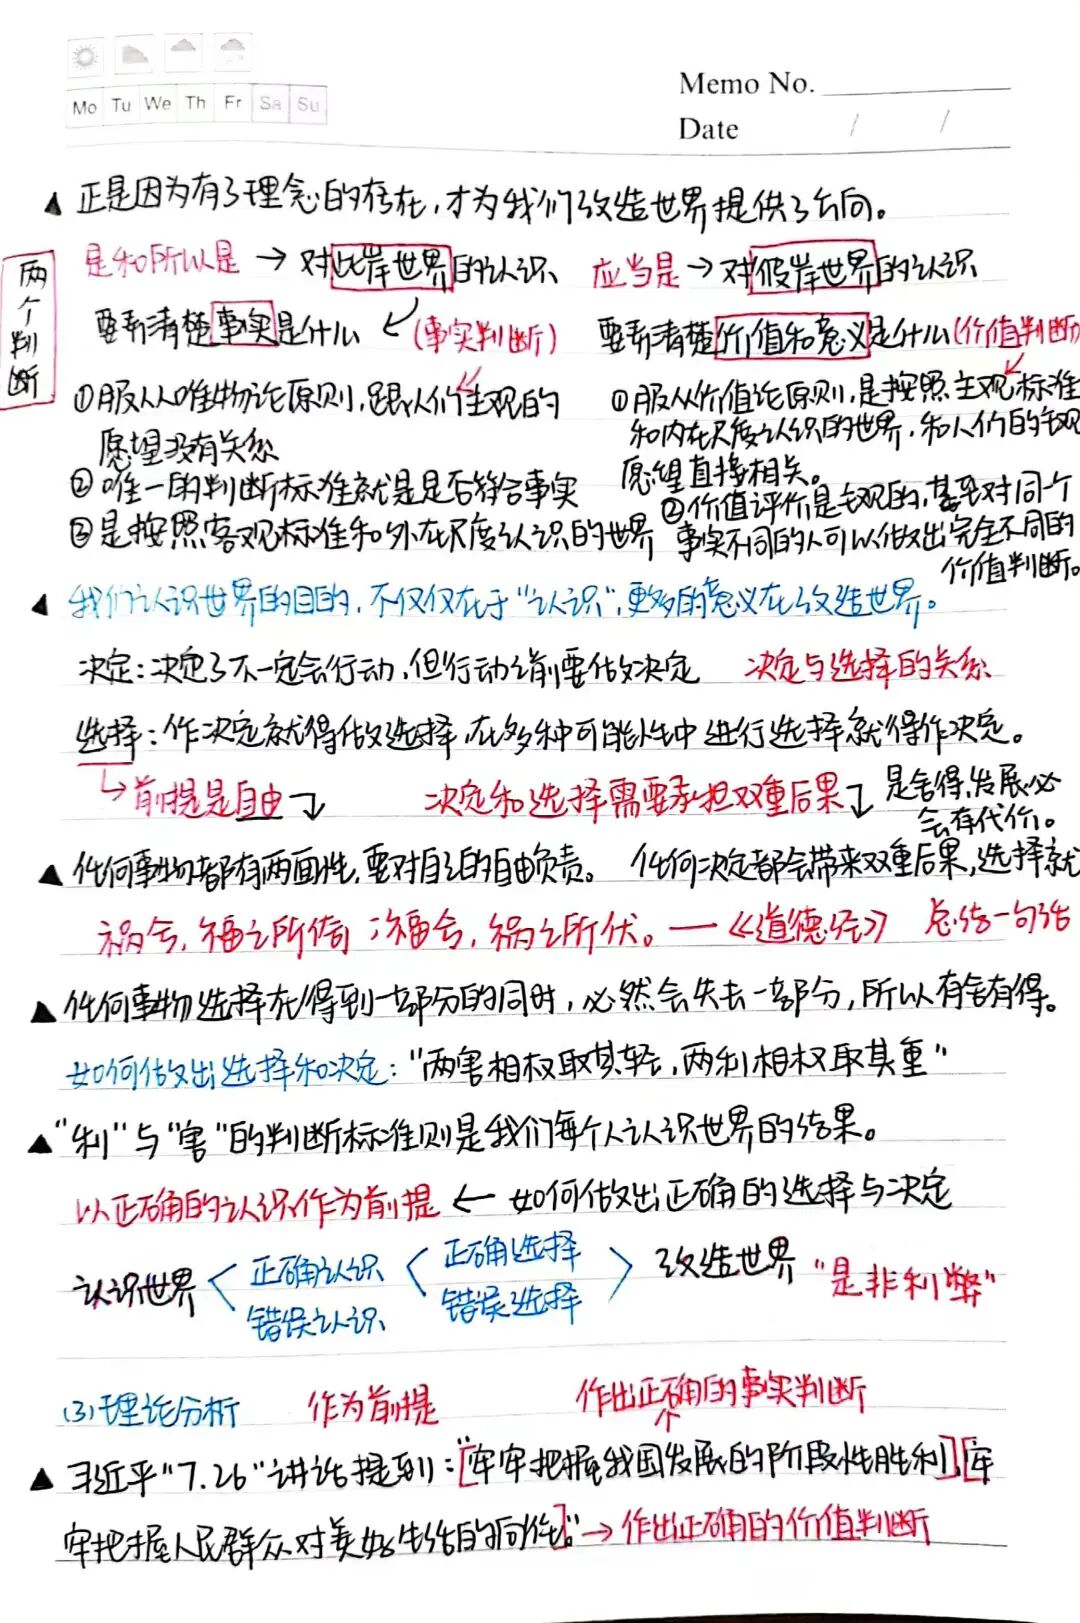 Memo No.
Mo Tu We Th Fr Sa Su
Date / /
▲ 正是因为有了理念的存在,才为我们改造世界提供了方向。
两个判断
是和所以是 → 对此岸世界的认识
要弄清楚事实是什么 (事实判断)
①服从唯物论原则,跟人们主观的
愿望没有关系
②唯一的判断标准就是是否符合事实
③是按照客观标准和外在尺度认识的世界
应当是 → 对彼岸世界的认识
要弄清楚价值和意义是什么(价值判断)
①服从价值论原则,是按照主观标准
和内在尺度认识的世界,和人们的主观
愿望直接相关。
②价值评价是主观的,甚至对同一个
事实不同的人可以做出完全不同的
价值判断。
▲ 我们认识世界的目的,不仅仅在于“认识”,更多的意义在改造世界。
决定:决定了不一定会行动,但行动之前要做决定 决定与选择的关系
选择:作决定就得做选择,在多种可能性中进行选择就得作决定。
↳前提是自由 决定和选择需要承担双重后果 是舍得,发展必
会有代价。
▲ 任何事物都有两面性,要对自己的自由负责。 任何决定都会带来双重后果,选择就
祸兮,福之所倚;福兮,祸之所伏。—《道德经》 总结一句话
▲ 任何事物选择在得到一部分的同时,必然会失去一部分,所以有舍有得。
如何做出选择和决定:“两害相权取其轻,两利相权取其重”
▲ “利”与“害”的判断标准则是我们每个人认识世界的结果。
以正确的认识作为前提 ← 如何做出正确的选择与决定
认识世界 正确认识 正确选择 改造世界 “是非利弊”
错误认识 错误选择
(3)理论分析 作为前提 作出正确的事实判断
▲ 习近平“7.26”讲话提到:“[牢牢把握我国发展的阶段性胜利],[牢
牢把握人民群众对美好生活的向往]。”→作出正确的价值判断